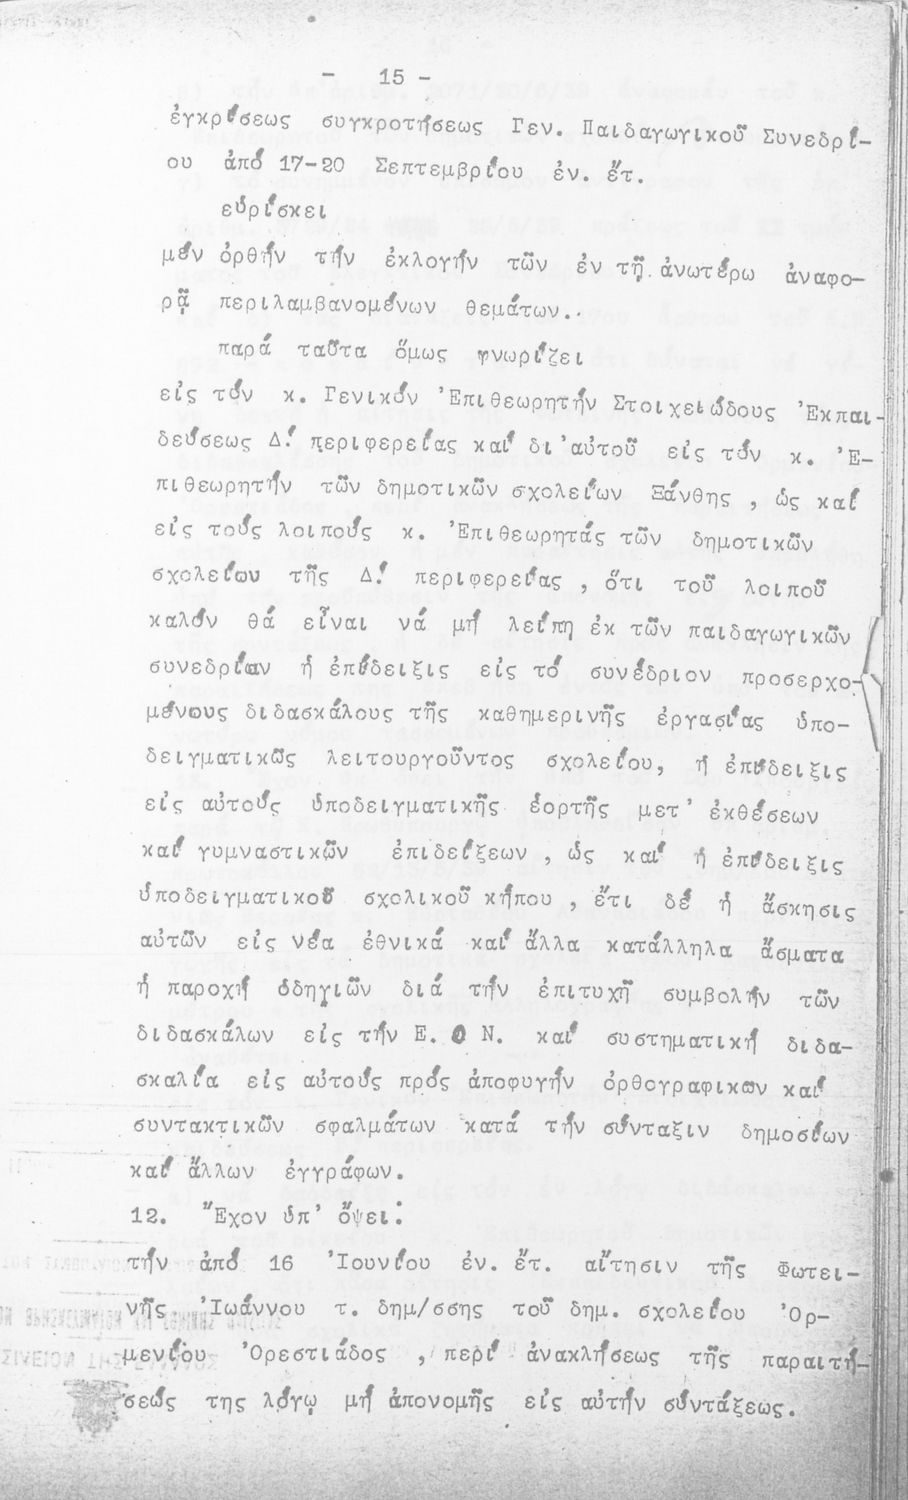 - 15 -
ἐγκρίσεως συγκροτήσεως Γεν. Παιδαγωγικοῦ Συνεδρί-
ου ἀπό 17-20 Σεπτεμβρίου ἐν. ἔτ.
εὑρίσκει
μέν ὀρθήν τήν ἐκλογήν τῶν ἐν τῇ ἀνωτέρω ἀναφο-
ρᾷ περιλαμβανομένων θεμάτων..
παρά ταῦτα ὅμως γνωρίζει
εἰς τόν κ. Γενικόν Ἐπιθεωρητήν Στοιχειώδους Ἐκπαι-
δεύσεως Δ! περιφερείας καί δι'αὐτοῦ εἰς τόν κ. Ἐ-
πιθεωρητήν τῶν δημοτικῶν σχολείων Ξάνθης , ὡς καί
εἰς τούς λοιπούς κ. Ἐπιθεωρητάς τῶν δημοτικῶν
σχολείων τῆς Δ! περιφερείας , ὅτι τοῦ λοιποῦ
καλόν θά εἶναι νά μή λείπῃ ἐκ τῶν παιδαγωγικῶν
συνεδρίων ἡ ἐπίδειξις εἰς τό συνέδριον προσερχο-
μένους διδασκάλους τῆς καθημερινῆς ἐργασίας ὑπο-
δειγματικῶς λειτουργοῦντος σχολείου, ἡ ἐπίδειξις
εἰς αὐτούς ὑποδειγματικῆς ἑορτῆς μετ' ἐκθέσεων
καί γυμναστικῶν ἐπιδείξεων , ὡς καί ἡ ἐπίδειξις
ὑποδειγματικοῦ σχολικοῦ κήπου , ἔτι δέ ἡ ἄσκησις
αὐτῶν εἰς νέα ἐθνικά καί ἄλλα κατάλληλα ἄσματα
ἡ παροχή ὁδηγιῶν διά τήν ἐπιτυχῆ συμβολήν τῶν
διδασκάλων εἰς τήν Ε. Ο Ν. καί συστηματική διδα-
σκαλία εἰς αὐτούς πρός ἀποφυγήν ὀρθογραφικων καί
συντακτικῶν σφαλμάτων κατά τήν σύνταξιν δημοσίων
καί ἄλλων ἐγγράφων.
12. Ἔχον ὑπ' ὄψει:
τήν ἀπό 16 Ἰουνίου ἐν. ἔτ. αἴτησιν τῆς Φωτει-
νῆς Ἰωάννου τ. δημ/σσης τοῦ δημ. σχολείου Ὀρ-
μενίου Ὀρεστιάδος , περί ἀνακλήσεως τῆς παραιτή-
σεώς της λόγῳ μή ἀπονομῆς εἰς αὐτήν συντάξεως.